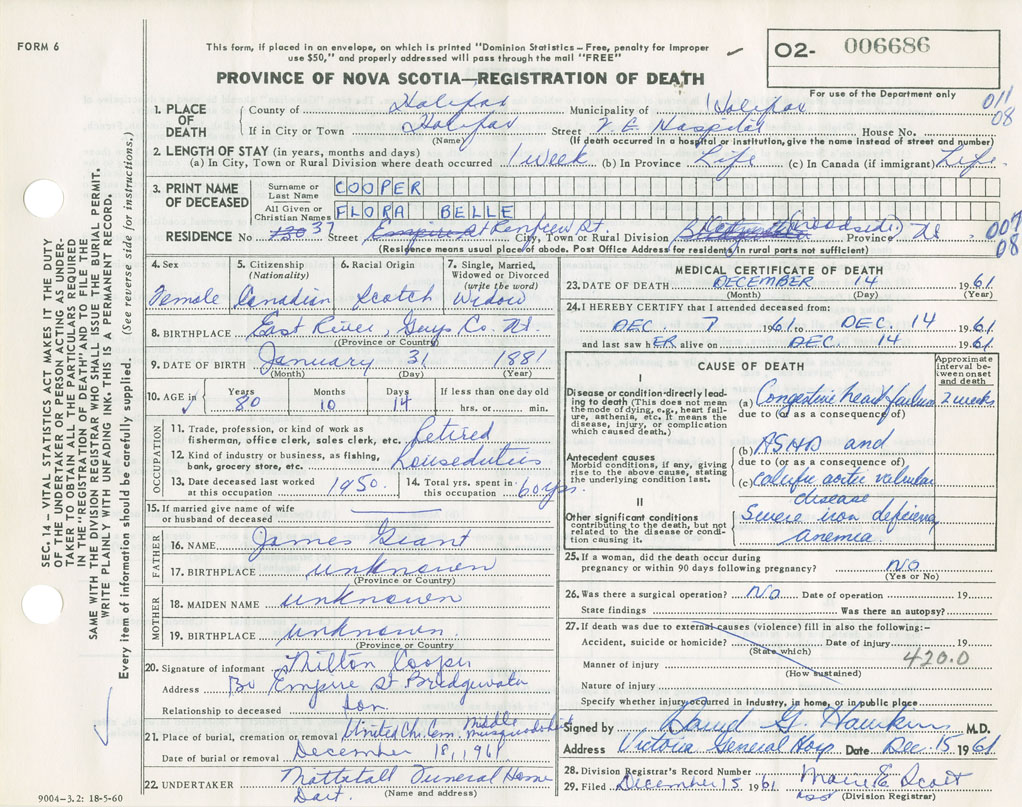 FORM 6
This form, if placed in an envelope, on which is printed "Dominion Statistics – Free, penalty for improper
use $50," and properly addressed will pass through the mail "FREE"
02- 006686
PROVINCE OF NOVA SCOTIA—REGISTRATION OF DEATH
For use of the Department only
1. PLACE OF DEATH County of Halifax Municipality of Halifax 011
08
If in City or Town Halifax Street V. E. Hospital House No.
(Name) (If death occurred in a hospital or institution, give the name instead of street and number)
2. LENGTH OF STAY (in years, months and days)
(a) In City, Town or Rural Division where death occurred 1 week (b) In Province Life (c) In Canada (if immigrant) Life
3. PRINT NAME OF DECEASED Surname or Last Name COOPER
All Given or Christian Names FLORA BELLE
RESIDENCE No 130 37 Street Empire St Renfrew St. City, Town or Rural Division (Woodside) Province NS 007
08
(Residence means usual place of abode. Post Office Address for residents in rural parts not sufficient)
4. Sex 5. Citizenship (Nationality) 6. Racial Origin 7. Single, Married, Widowed or Divorced (write the word)
Female Canadian Scotch Widow
8. BIRTHPLACE East River, Guys Co. NS.
(Province or Country)
9. DATE OF BIRTH January 31 1881
(Month) (Day) (Year)
10. AGE in Years Months Days If less than one day old
80 10 14 hrs. or min.
OCCUPATION
11. Trade, profession, or kind of work as
fisherman, office clerk, sales clerk, etc. Retired
12. Kind of industry or business, as fishing,
bank, grocery store, etc. Houseduties
13. Date deceased last worked
at this occupation 1950. 14. Total yrs. spent in
this occupation 60 yrs.
15. If married give name of wife
or husband of deceased
FATHER
16. NAME James Grant
17. BIRTHPLACE unknown
(Province or Country)
MOTHER
18. MAIDEN NAME unknown
19. BIRTHPLACE unknown.
(Province or Country
20. Signature of informant Milton Cooper
Address Empire St Bridgewater
Relationship to deceased Son.
21. Place of burial, cremation or removal United Ch. Cem. Middle Musquodoboit
Date of burial or removal December 18, 1961
22. UNDERTAKER Mattatall Funeral Home
Dart. (Name and address)
9004-3.2: 18-5-60
MEDICAL CERTIFICATE OF DEATH
23. DATE OF DEATH DECEMBER 14 1961
(Month) (Day) (Year)
24. I HEREBY CERTIFY that I attended deceased from:
DEC. 7 1961 to DEC. 14 1961
and last saw hER alive on DEC. 14 1961
CAUSE OF DEATH
Approximate interval between onset and death
I
Disease or condition directly leading to death (This does not mean
the mode of dying, e.g., heart failure, asthenia, etc. It means the
disease, injury, or complication
which caused death.)
(a) Congestive heart failure 2 weeks
due to (or as a consequence of)
Antecedent causes
Morbid conditions, if any, giving
rise to the above cause, stating
the underlying condition last.
(b) ASHD and
due to (or as a consequence of)
(c) calcific aortic valvular
disease
II
Other significant conditions
contributing to the death, but not
related to the disease or condition causing it.
Severe iron deficiency
anemia
25. If a woman, did the death occur during
pregnancy or within 90 days following pregnancy? NO
(Yes or No)
26. Was there a surgical operation? No Date of operation 19
State findings Was there an autopsy?
27. If death was due to external causes (violence) fill in also the following:–
Accident, suicide or homicide? Date of injury 19
(State which) 420.0
Manner of injury
(How sustained)
Nature of injury
Specify whether injury occurred in industry, in home, or in public place
Signed by G. Hawkins M.D.
Address Victoria General Hosp. Date Dec. 15 1961
28. Division Registrar's Record Number
29. Filed December 15 1961 Scott
(Division Registrar)
SEC. 14 – VITAL STATISTICS ACT MAKES IT THE DUTY
OF THE UNDERTAKER OR PERSON ACTING AS UNDER-
TAKER TO OBTAIN ALL THE PARTICULARS REQUIRED
IN THE "REGISTRATION OF DEATH" AND TO FILE THE
SAME WITH THE DIVISION REGISTRAR WHO SHALL ISSUE THE BURIAL PERMIT.
WRITE PLAINLY WITH UNFADING INK. THIS IS A PERMANENT RECORD.
Every item of information should be carefully supplied. (See reverse side for instructions.)